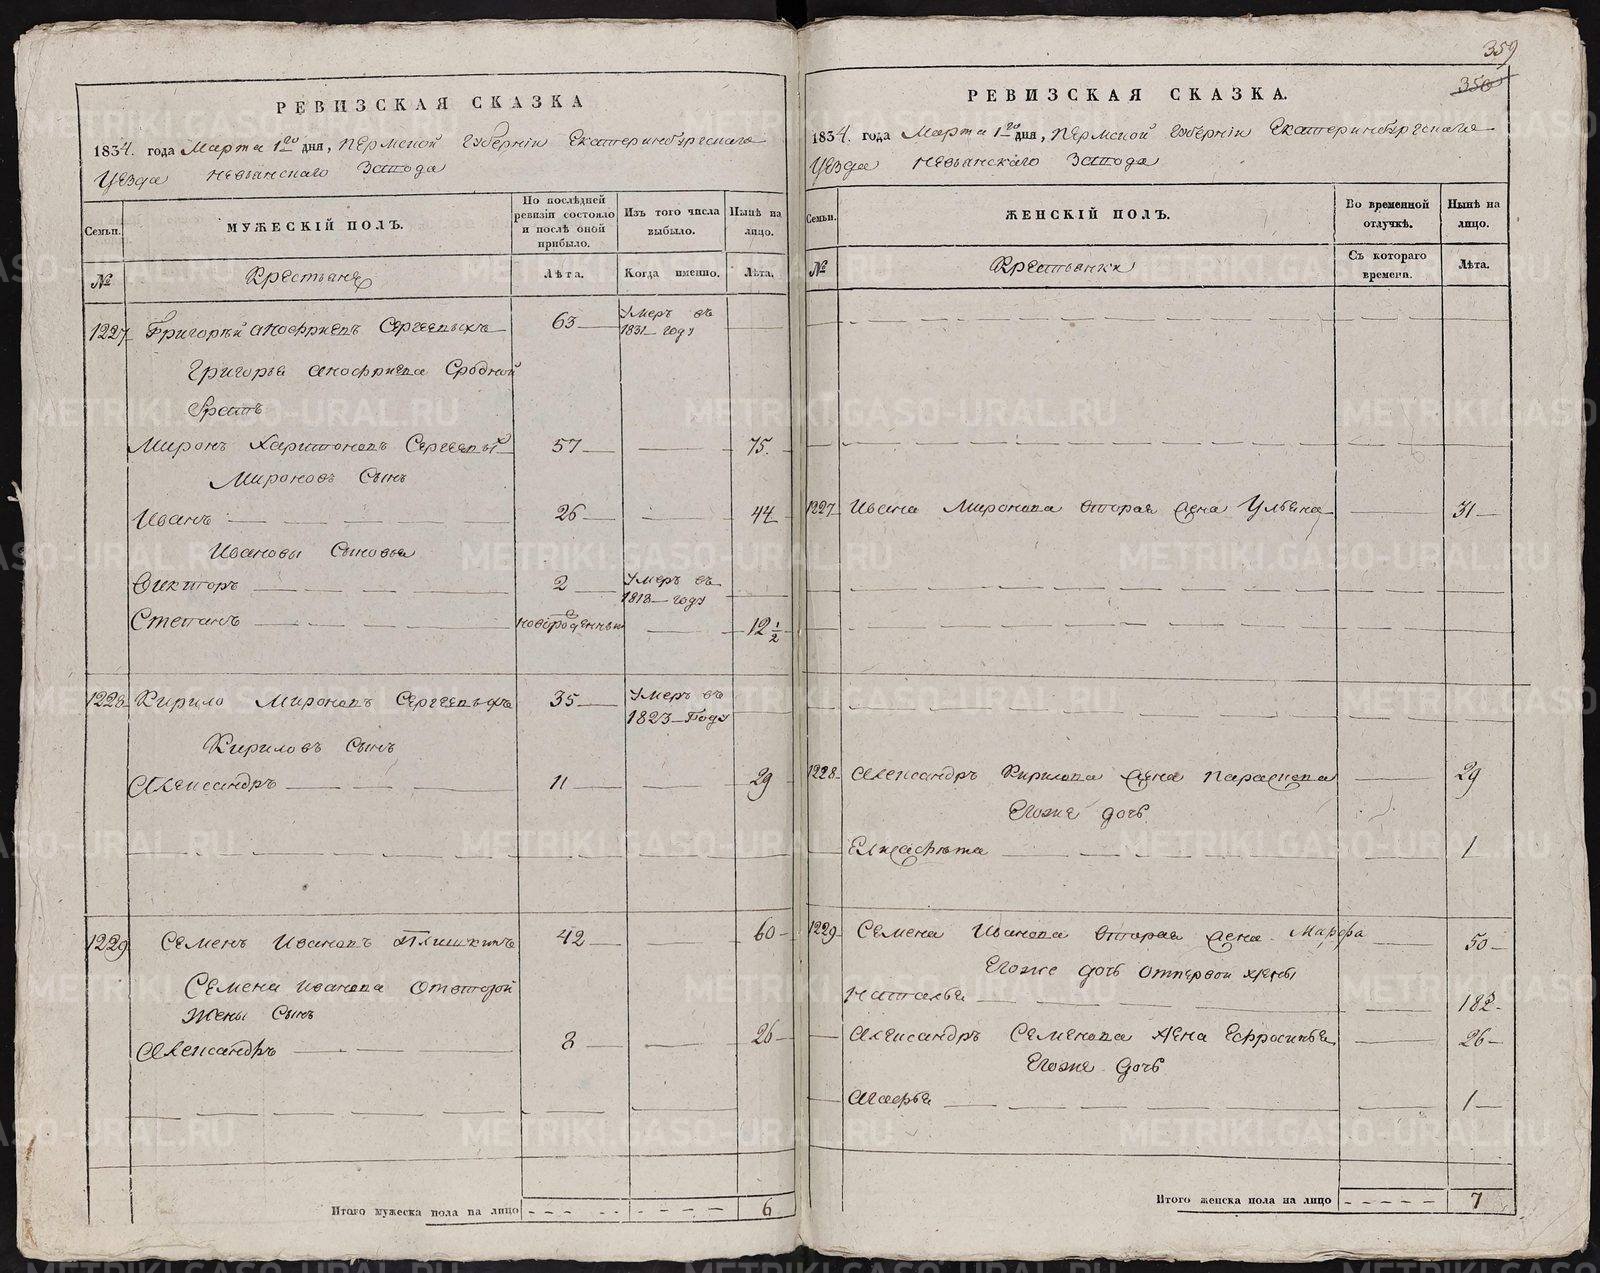 РЕВИЗСКАЯ СКАЗКА
1834. года Марта 1го дня, Пермской Губерніи Екатеринбургскаго
Уезда Невьянскаго Завода
Семьи.
МУЖЕСКІЙ ПОЛЪ.
По послѣдней ревизіи состояло и послѣ оной прибыло.
Изъ того числа выбыло.
Нынѣ на лицо.
№
Крестьяне
Лѣта.
Когда именно.
Лѣта.
1227 Григорьй Аноѳриевъ Сергеевыхъ 63 Умеръ въ 1831 году
Григорья Аноѳриева Сродной
братъ
Миронъ Харитоновъ Сергеевых 57 75.
Мироновъ Сынъ
Иванъ 26 44
Ивановы Сыновья
Викторъ 2 Умеръ въ 1813 году
Степанъ новорожденный 12 1/2
1228 Кирило Мироновъ Сергеевыхъ 35 Умеръ въ 1823 Году
Кириловъ Сынъ
Александръ 11 29
1229 Семенъ Ивановъ Плишкинъ 42 60
Семена Иванова Отвторой
Жены Сынъ
Александръ 8 26
Итого мужеска пола на лицо 6
359
350
РЕВИЗСКАЯ СКАЗКА.
1834. года Марта 1го дня, Пермской Губерніи Екатеринбургскаго
Уезда Невьянскаго Завода
Семьи.
ЖЕНСКІЙ ПОЛЪ.
Во временной отлучкѣ.
Нынѣ на лицо.
№
Крестьянки
Съ котораго времени.
Лѣта.
1227 Ивана Миронова вторая жена Ульяна 31
1228 Александръ Кирилова жена Параскева 29
Егоже дочь
Елисавѣта 1
1229 Семена Иванова вторая жена Марфа 50
Егоже дочь отпервой жены
Наталья 18
Александръ Семенова жена Ефросинья 26
Егоже дочь
Марья 1
Итого женска пола на лицо 7
METRIKI.GASO-URAL.RU